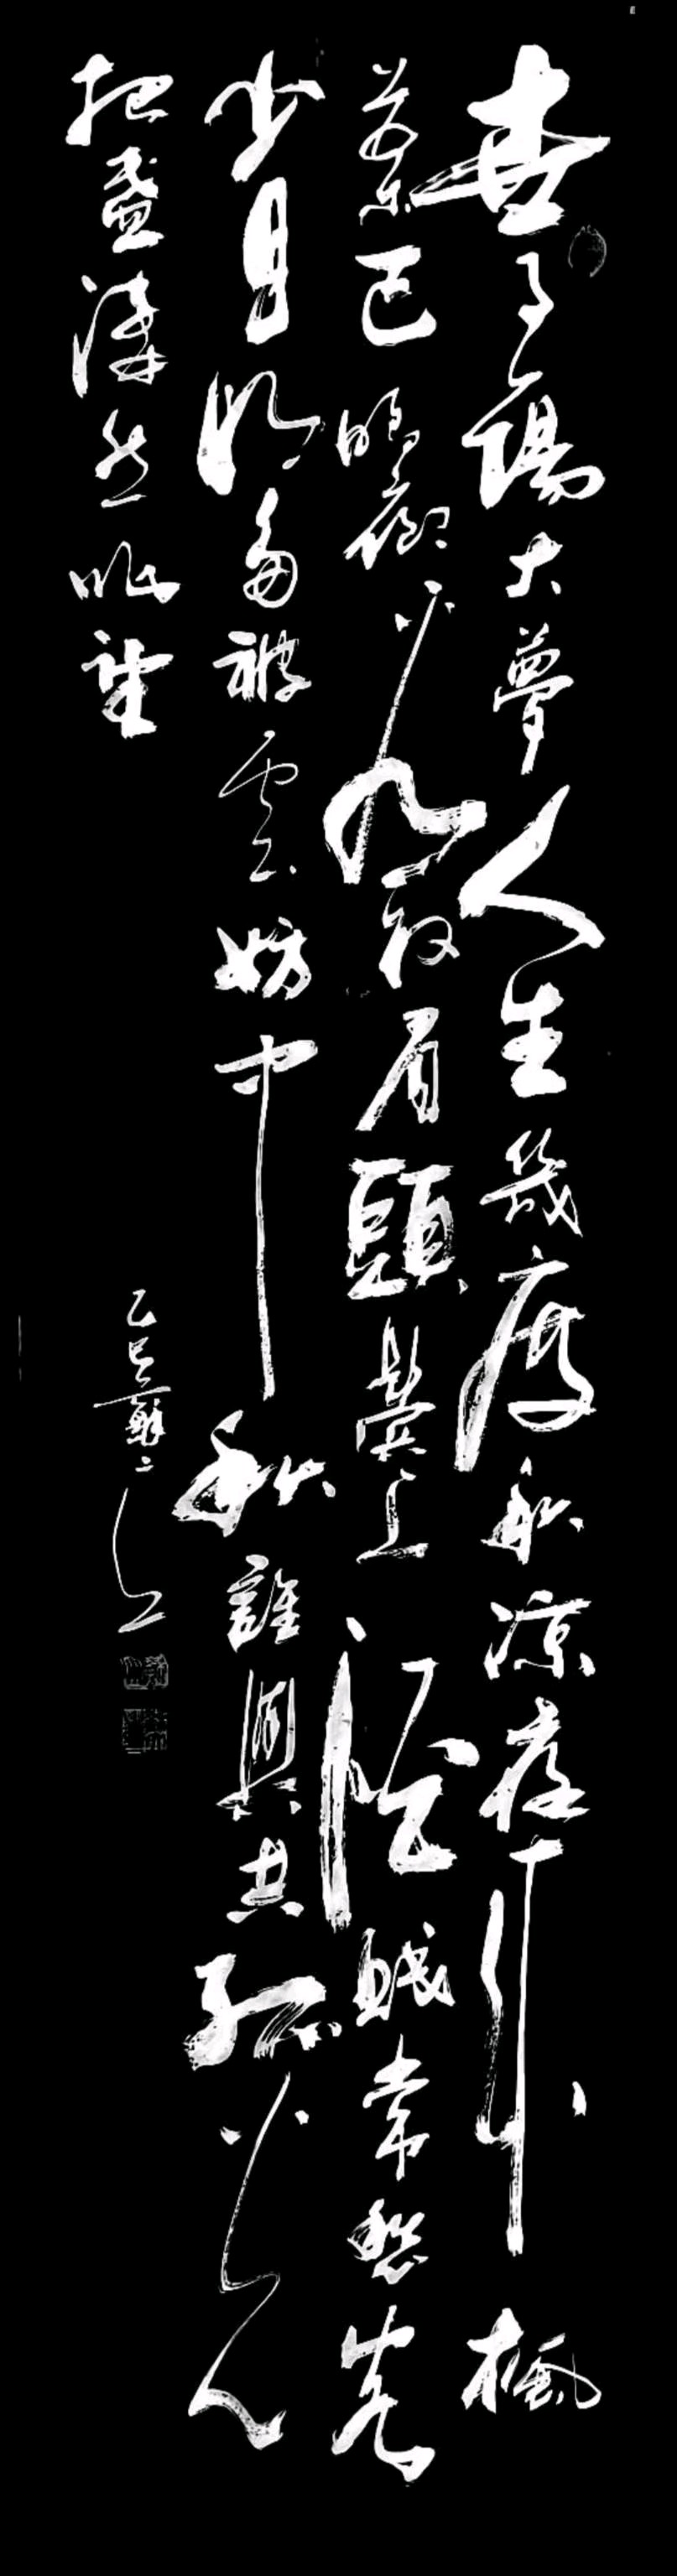 世事一場大夢人生幾度秋涼夜來楓
葉已鳴廊看取眉頭鬢上酒賤常愁客
少月明多被雲妨中秋誰與共孤光
把盞淒然北望
乙巳蘇